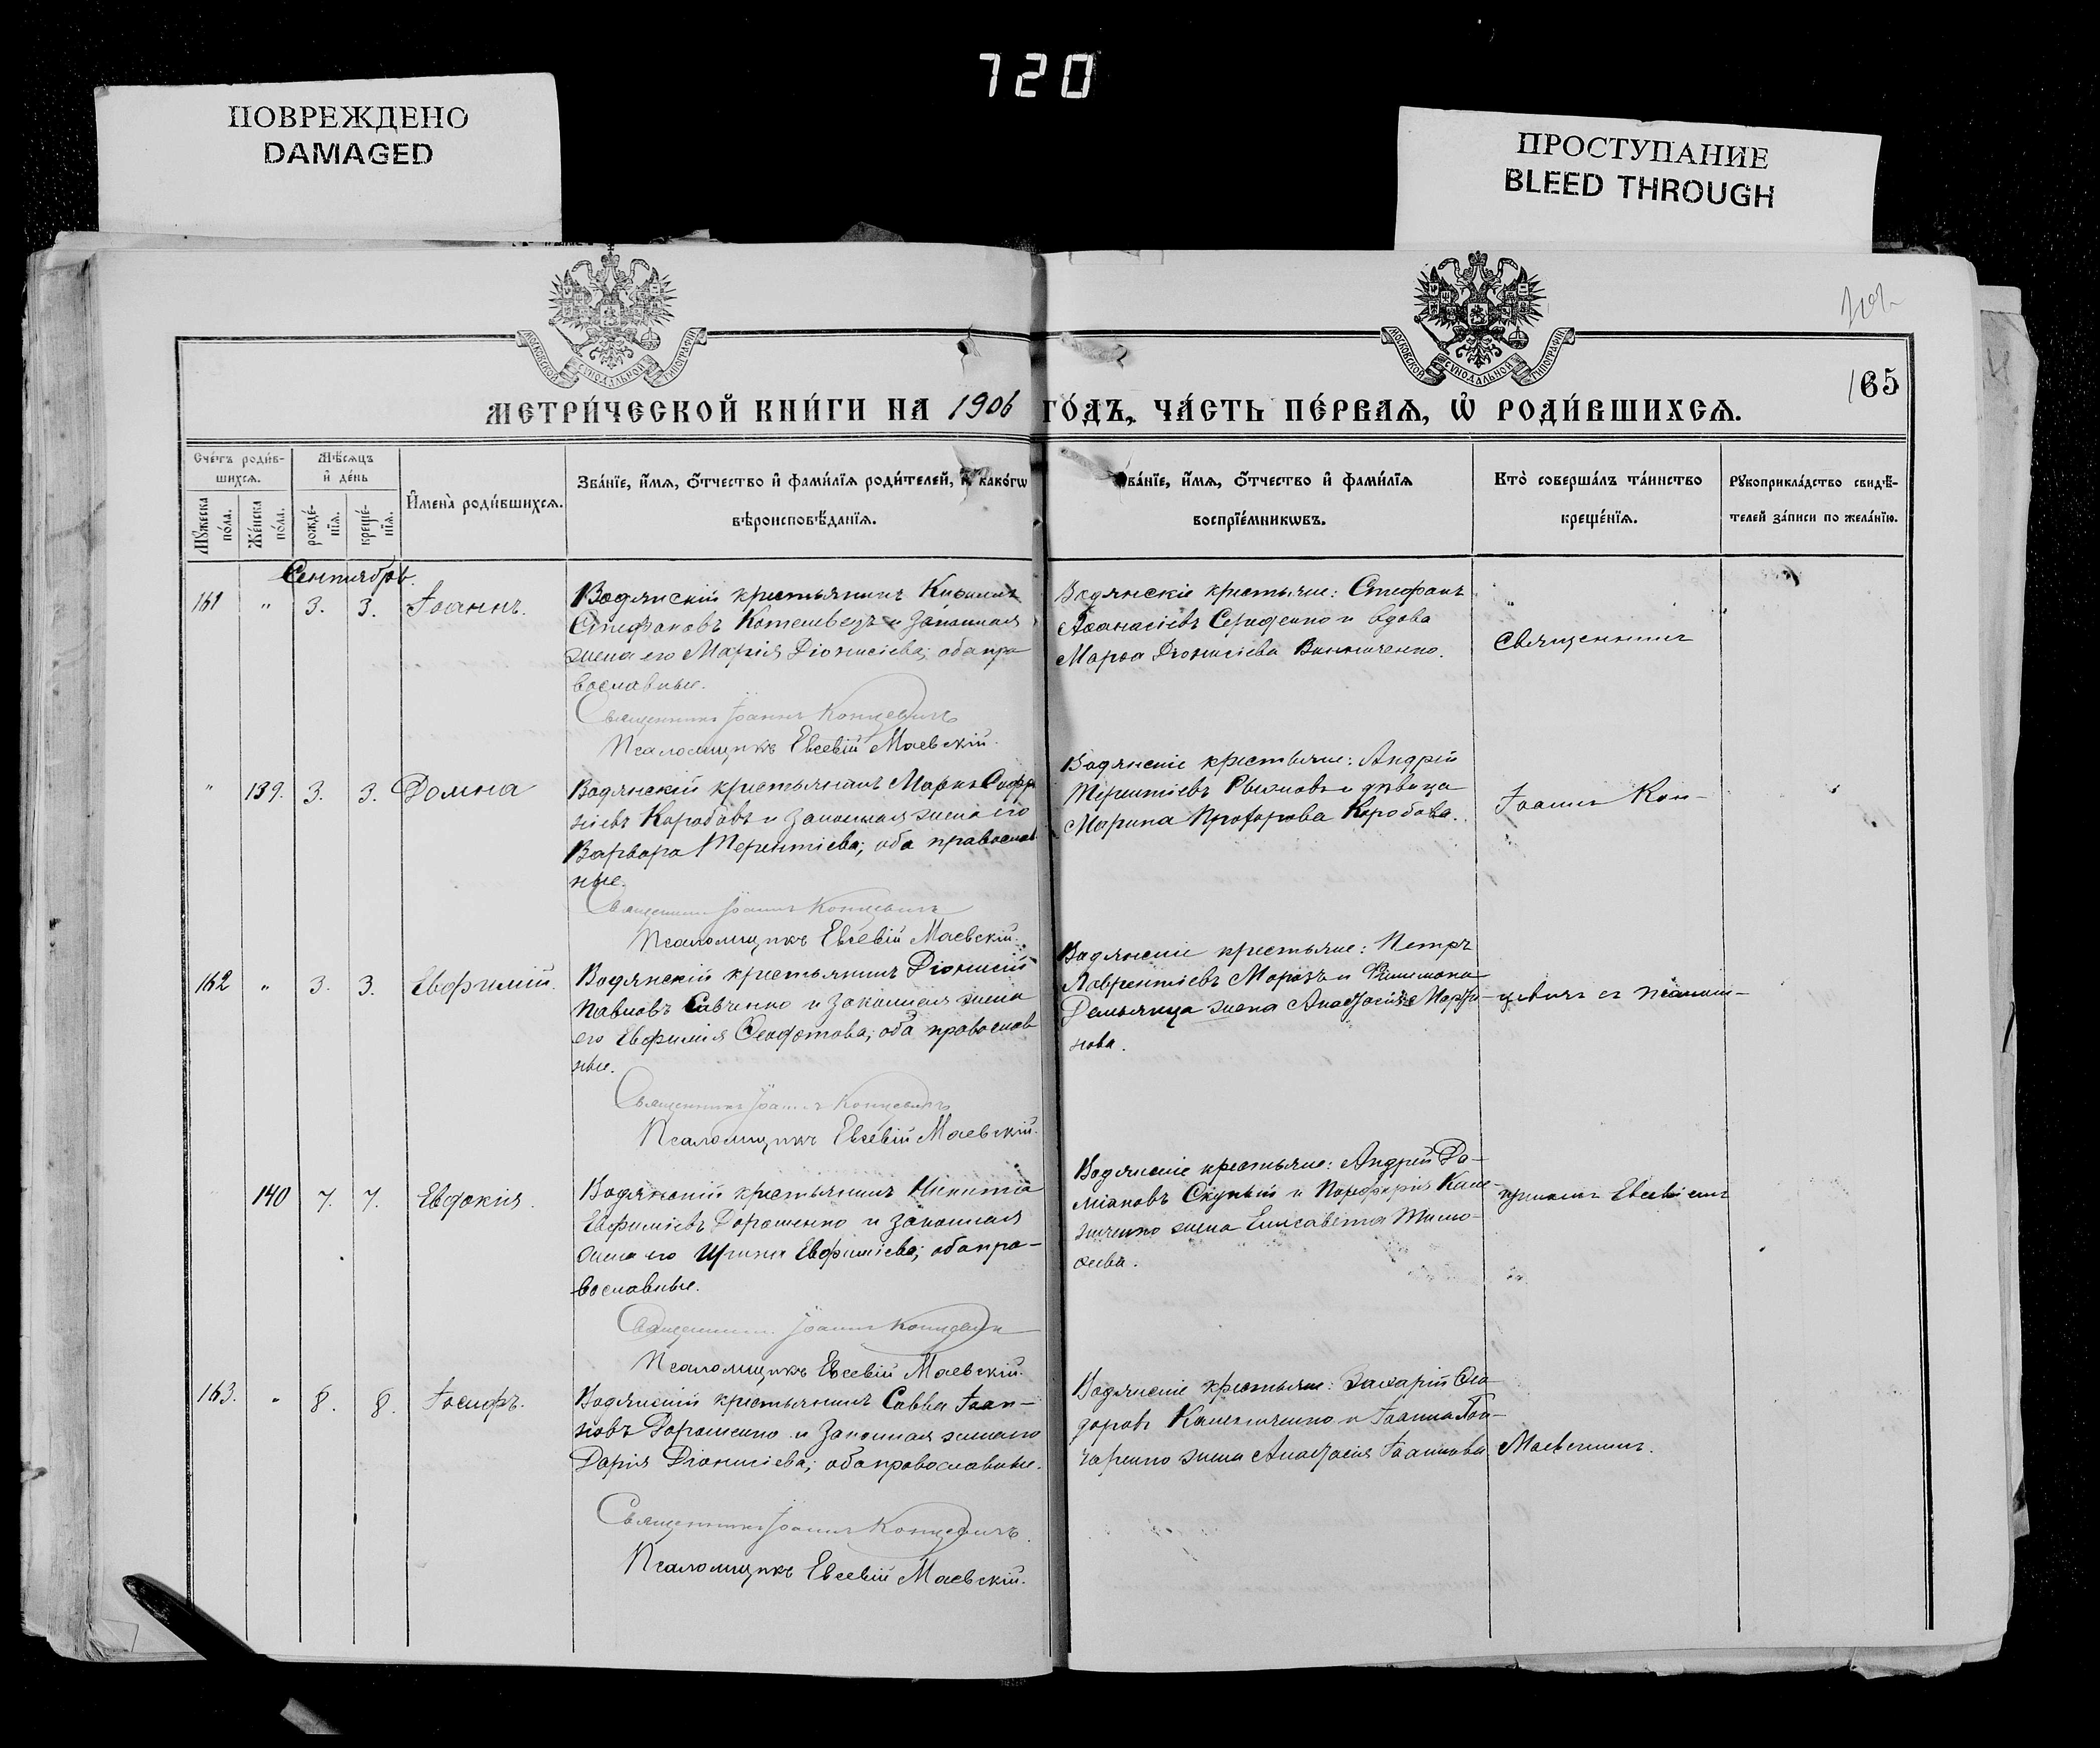 720
ПОВРЕЖДЕНО
DAMAGED
ПРОСТУПАНИЕ
BLEED THROUGH
МОСКОВСКОЙ СѴНОДАЛЬНОЙ ТИПОГРАФІИ
МОСКОВСКОЙ СѴНОДАЛЬНОЙ ТИПОГРАФІИ
165
МЕТРИ́ЧЕСКОЙ КНИ́ГИ НА 1906 ГО́ДЪ, ЧА́СТЬ ПЕ́РВАѦ, Ѽ РОДИ́ВШИХСѦ.
Сче́тъ роди́в-
шихсѧ.
Мꙋ́жеска по́ла.
Же́нска по́ла.
Мѣ́сѧцъ
и҆ де́нь
рожде́-
нїѧ.
креще́-
нїѧ.
И҆мена̀ роди́вшихсѧ.
Зва́нїе, и҆́мѧ, ѻ҆́тчество и҆ фами́лїѧ роди́телей, и҆ како́гѡ
вѣроисповѣ́данїѧ.
Зва́нїе, и҆́мѧ, ѻ҆́тчество и҆ фами́лїѧ
воспрїе́мникѡвъ.
Кто̀ соверша́лъ та́инство
креще́нїѧ.
Рꙋкоприкла́дство свидѣ́-
телей за́писи по жела́нїю.
Сентябрь.
161 " 3. 3. Іоаннъ.
Водянскій крестьянинъ
Стефановъ Котелевецъ и законная
жена его Марія Діонисіева; оба пра
вославные.
Священникъ Іоаннъ Концевичъ
Псаломщикъ Евсевій Маевскій.
Водянскіе крестьяне: Стефанъ
Аѳанасіевъ Середенко и вдова
Марѳа Діонисіева Винниченко.
Священникъ
" 139. 3. 3. Домна
Водянскій крестьянинъ Маркъ Софро
ніевъ Коробовъ и законная жена его
Варвара Терентіева; оба православ
ные.
Священникъ Іоаннъ Концевичъ
Псаломщикъ Евсевій Маевскій.
Водянскіе крестьяне: Андрей
Терентіевъ Рыжовъ и дѣвица
Марина Прохорова Коробова.
Іоаннъ Кон-
162 " 3. 3. Евфимій.
Водянскій крестьянинъ Діонисій
Павловъ Савченко и законная жена
его Евфимія Ѳеодотова; оба православ
ные.
Священникъ Іоаннъ Концевичъ
Псаломщикъ Евсевій Маевскій.
Водянскіе крестьяне: Петръ
Лаврентіевъ Морозъ и Филимона
Демьянца жена Анастасія Марти-
нова.
цевичъ съ псалом-
140 7. 7. Евдокія.
Водянскій крестьянинъ Никита
Евфиміевъ Дорошенко и законная
жена его Ирина Евфиміева; оба пра-
вославные.
Священникъ Іоаннъ Концевичъ
Псаломщикъ Евсевій Маевскій.
Водянскіе крестьяне: Андрей Да-
міановъ Скупый и Порфирія Каме-
ниченко жена Елисавета Тимо-
ѳеева.
щикомъ Евсевіемъ
163. " 8. 8. Іосифъ.
Водянскій крестьянинъ Савва Іоан-
новъ Дорошенко и законная жена его
Дарія Діонисіева; оба православные.
Священникъ Іоаннъ Концевичъ.
Псаломщикъ Евсевій Маевскій.
Водянскіе крестьяне: Захарій Ѳео-
доровъ Камениченко и Іоанна Гон-
чаренко жена Анастасія Іоаннова
Маевскимъ.